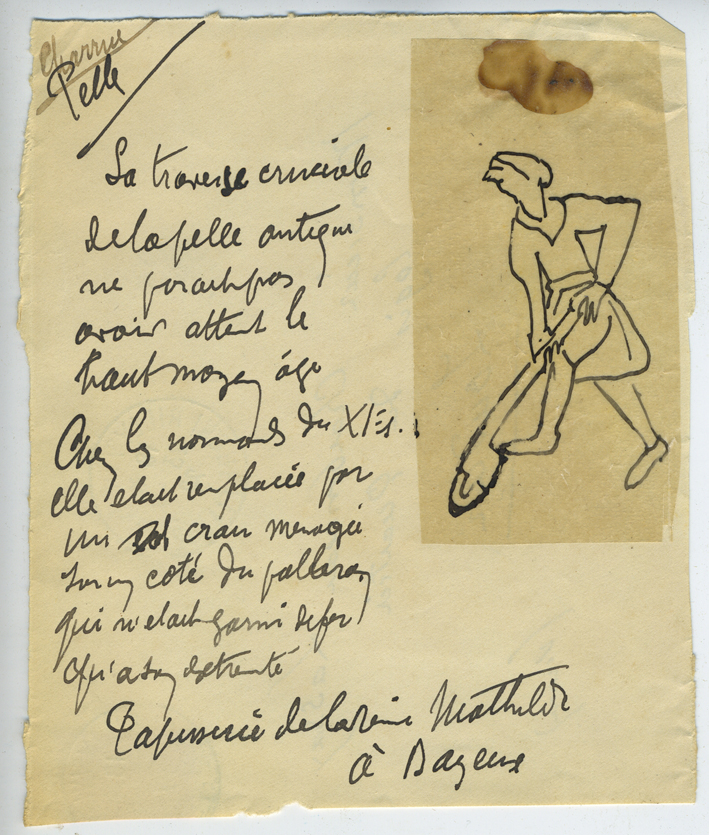 Charrue
Pelle
La traverse cruciale
de la pelle antique
ne parait pas
avoir atteint le
haut moyen âge
Chez les normands du XIe s.
elle etait remplacée par
un cran menagé
sur un coté du palleron
qui n'etait garni de fer
qu'a son extremité
Tapisserie de la reine Mathilde
à Bayeux